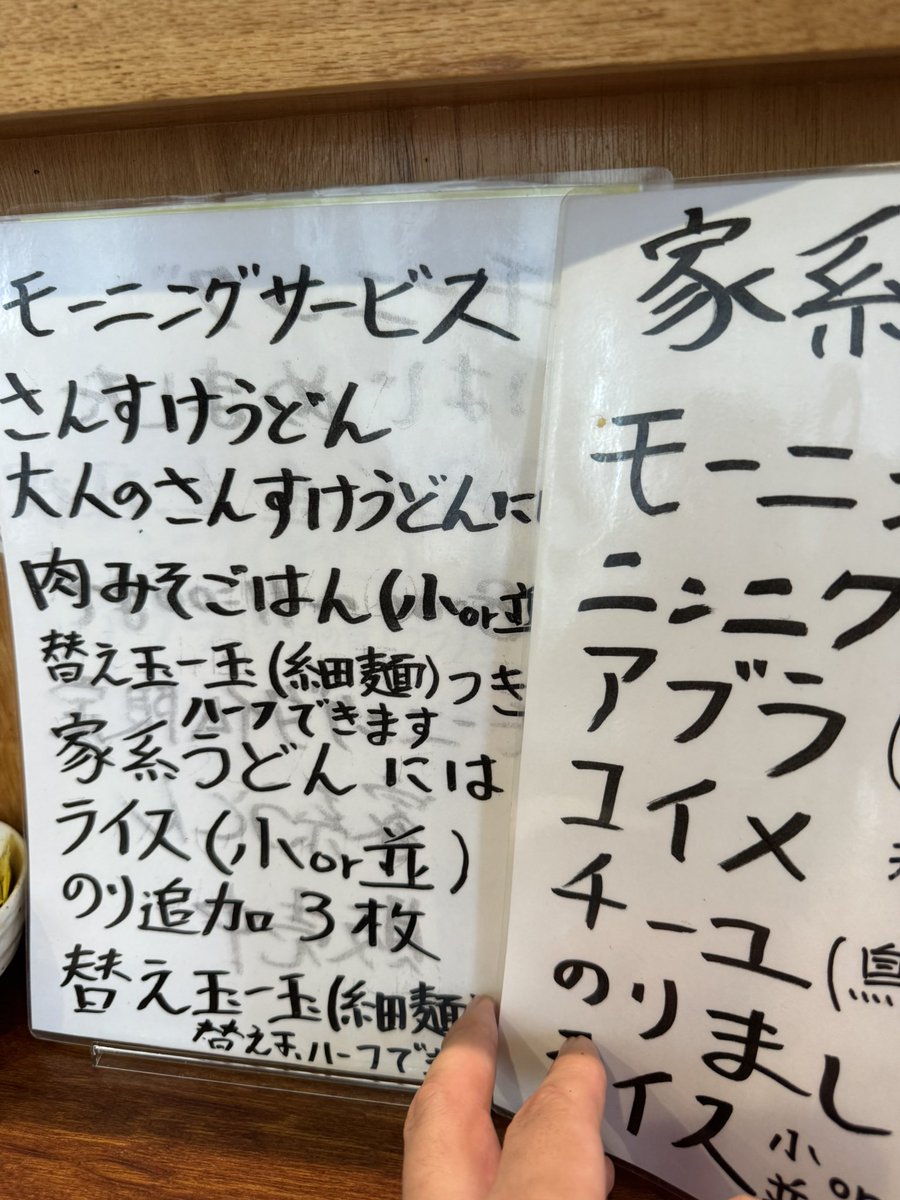 モーニングサービス
さんすけうどん
大人のさんすけうどんに
肉みそごはん(小or並
替え玉一玉(細麺)つき
ハーフできます
家系うどんには
ライス(小or並)
のり追加3枚
替え玉一玉(細麺
替え玉、ハーフでき
家系
モーニ
ニンニク
アブラ
ユイメ
チーユ(鳥
のりまし
イス小
or